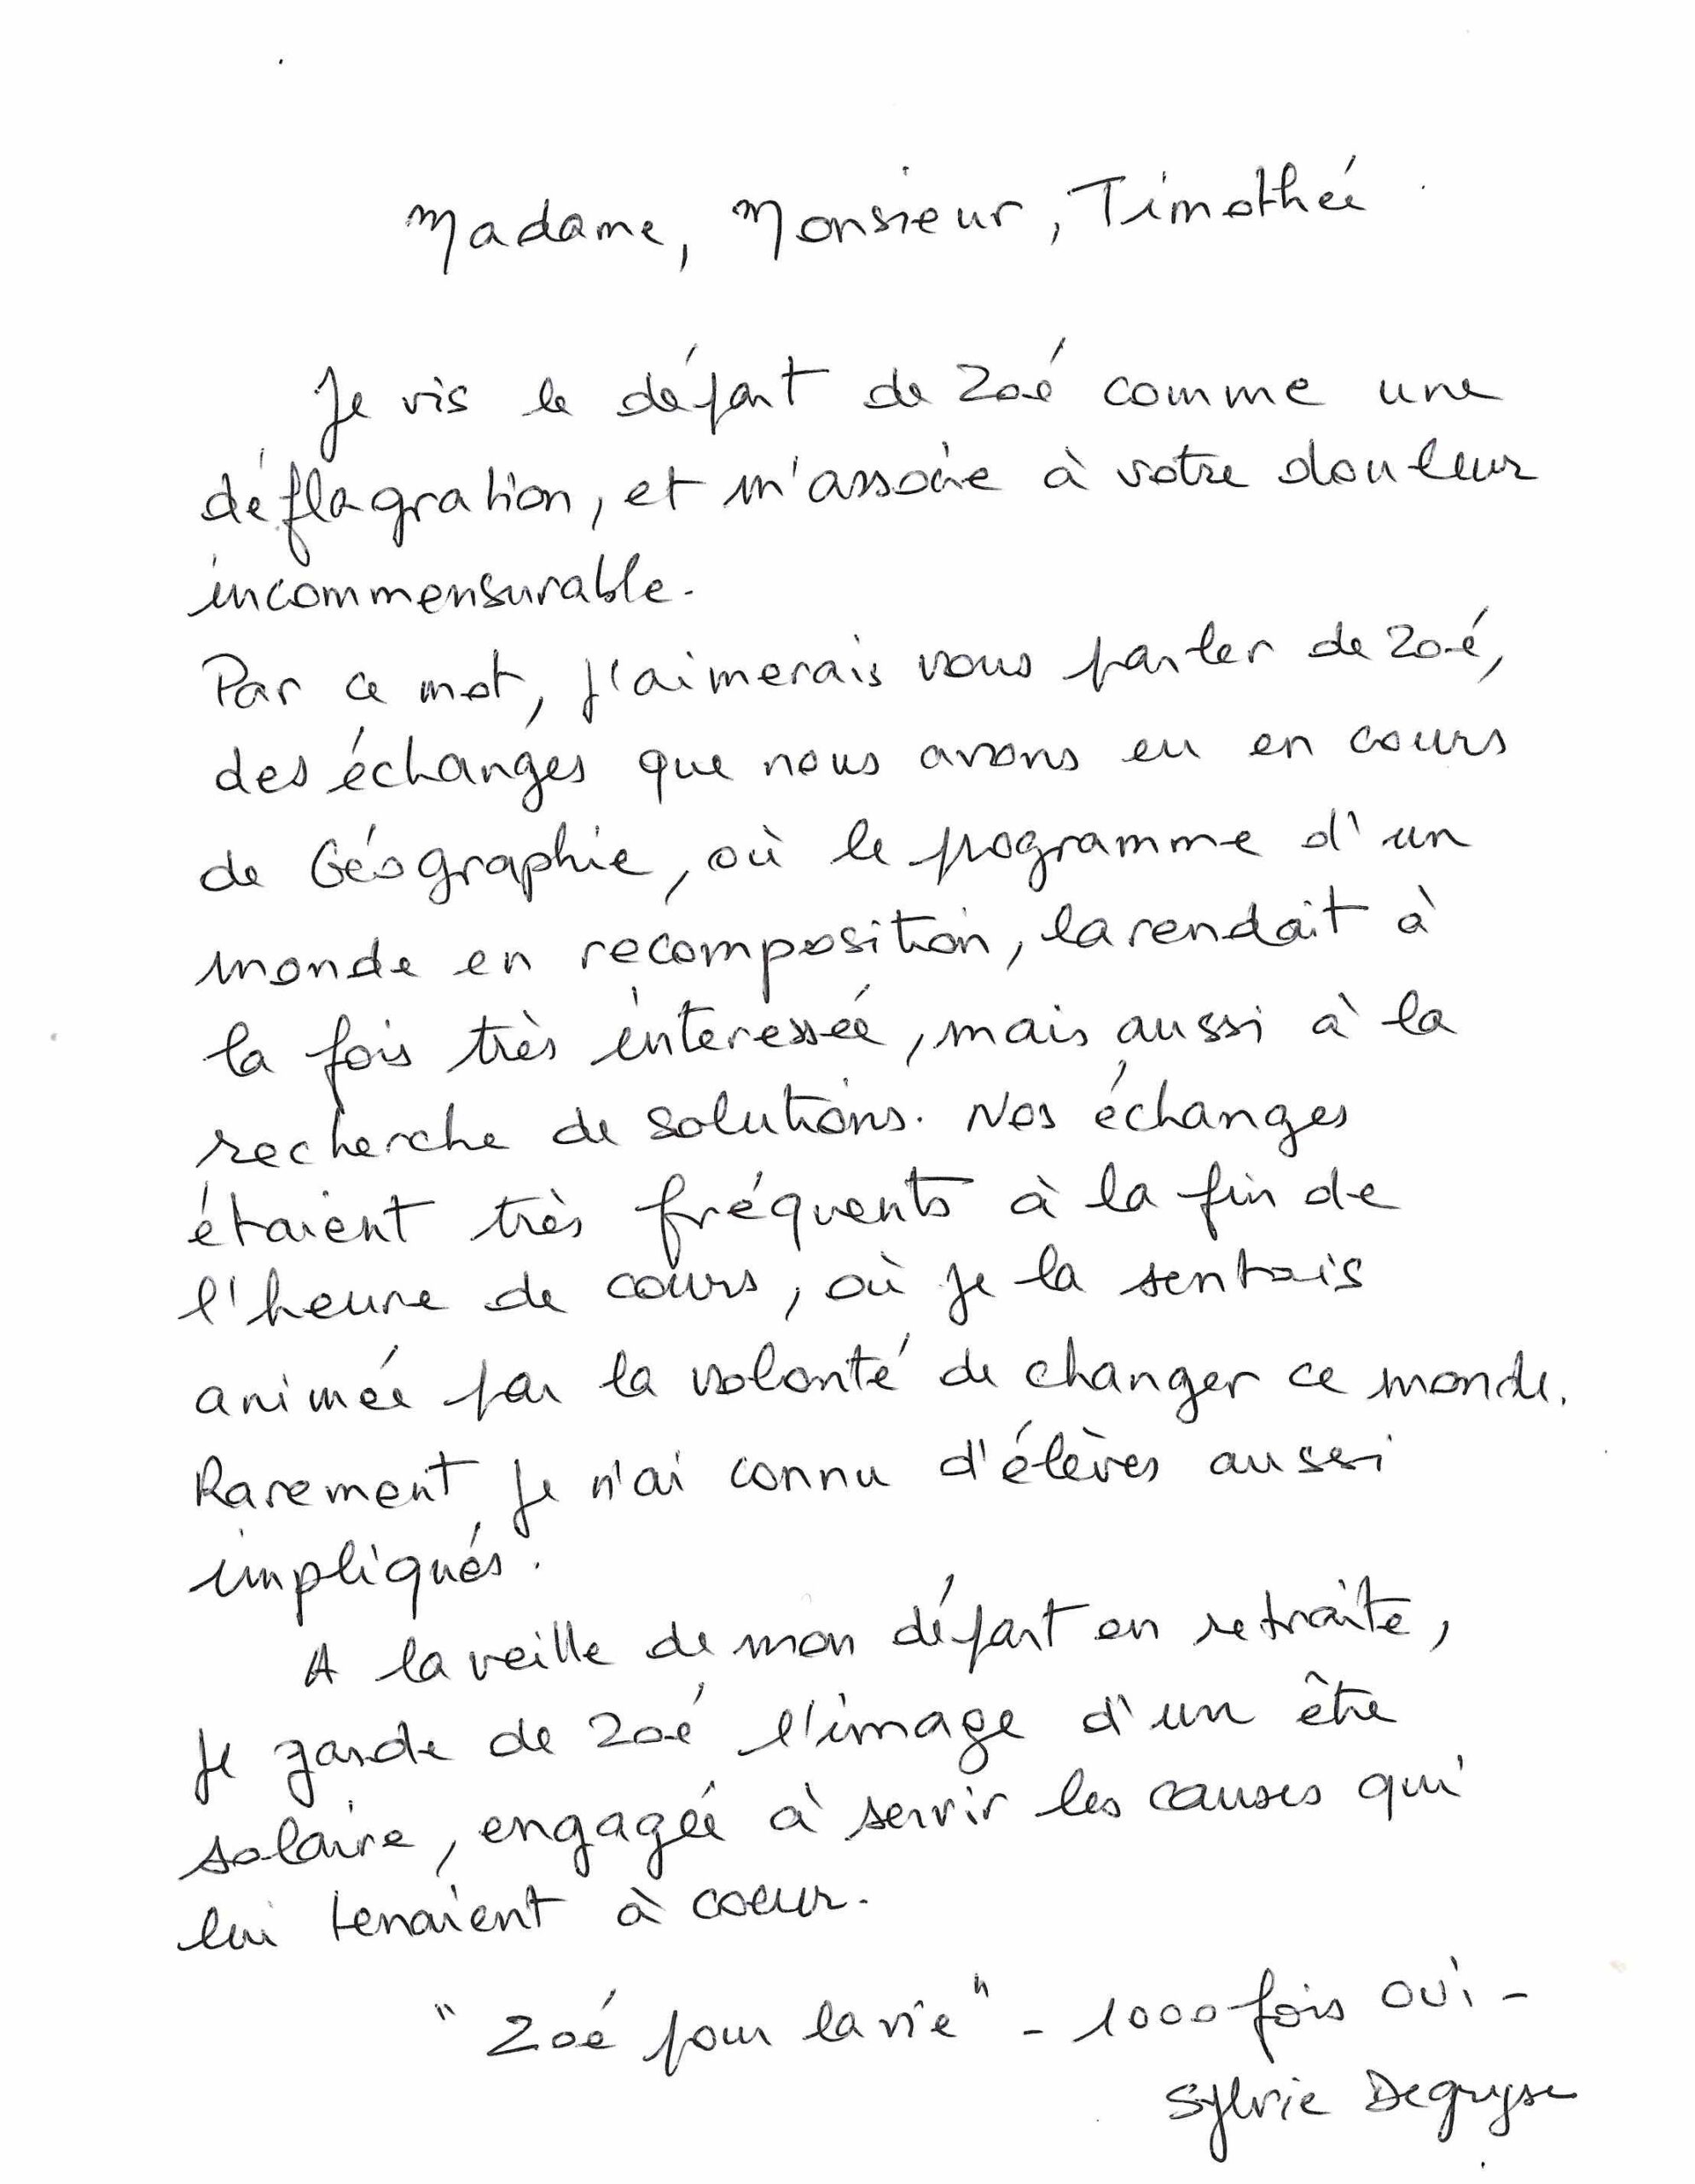 Madame, Monsieur, Timothée
Je vis le départ de Zoé comme une
déflagration, et m'associe à votre douleur
incommensurable.
Par ce mot, j'aimerais vous parler de Zoé,
des échanges que nous avons eu en cours
de Géographie, où le programme d'un
monde en recomposition, la rendait à
la fois très intéressée, mais aussi à la
recherche de solutions. Nos échanges
étaient très fréquents à la fin de
l'heure de cours, où je la sentais
animée par la volonté de changer ce monde.
Rarement je n'ai connu d'élèves aussi
impliqués.
A la veille de mon départ en retraite,
je garde de Zoé l'image d'un être
solaire, engagée à servir les causes qui
lui tenaient à coeur.
"Zoé pour la vie" - 1000 fois OUI -
Sylvie Degryse